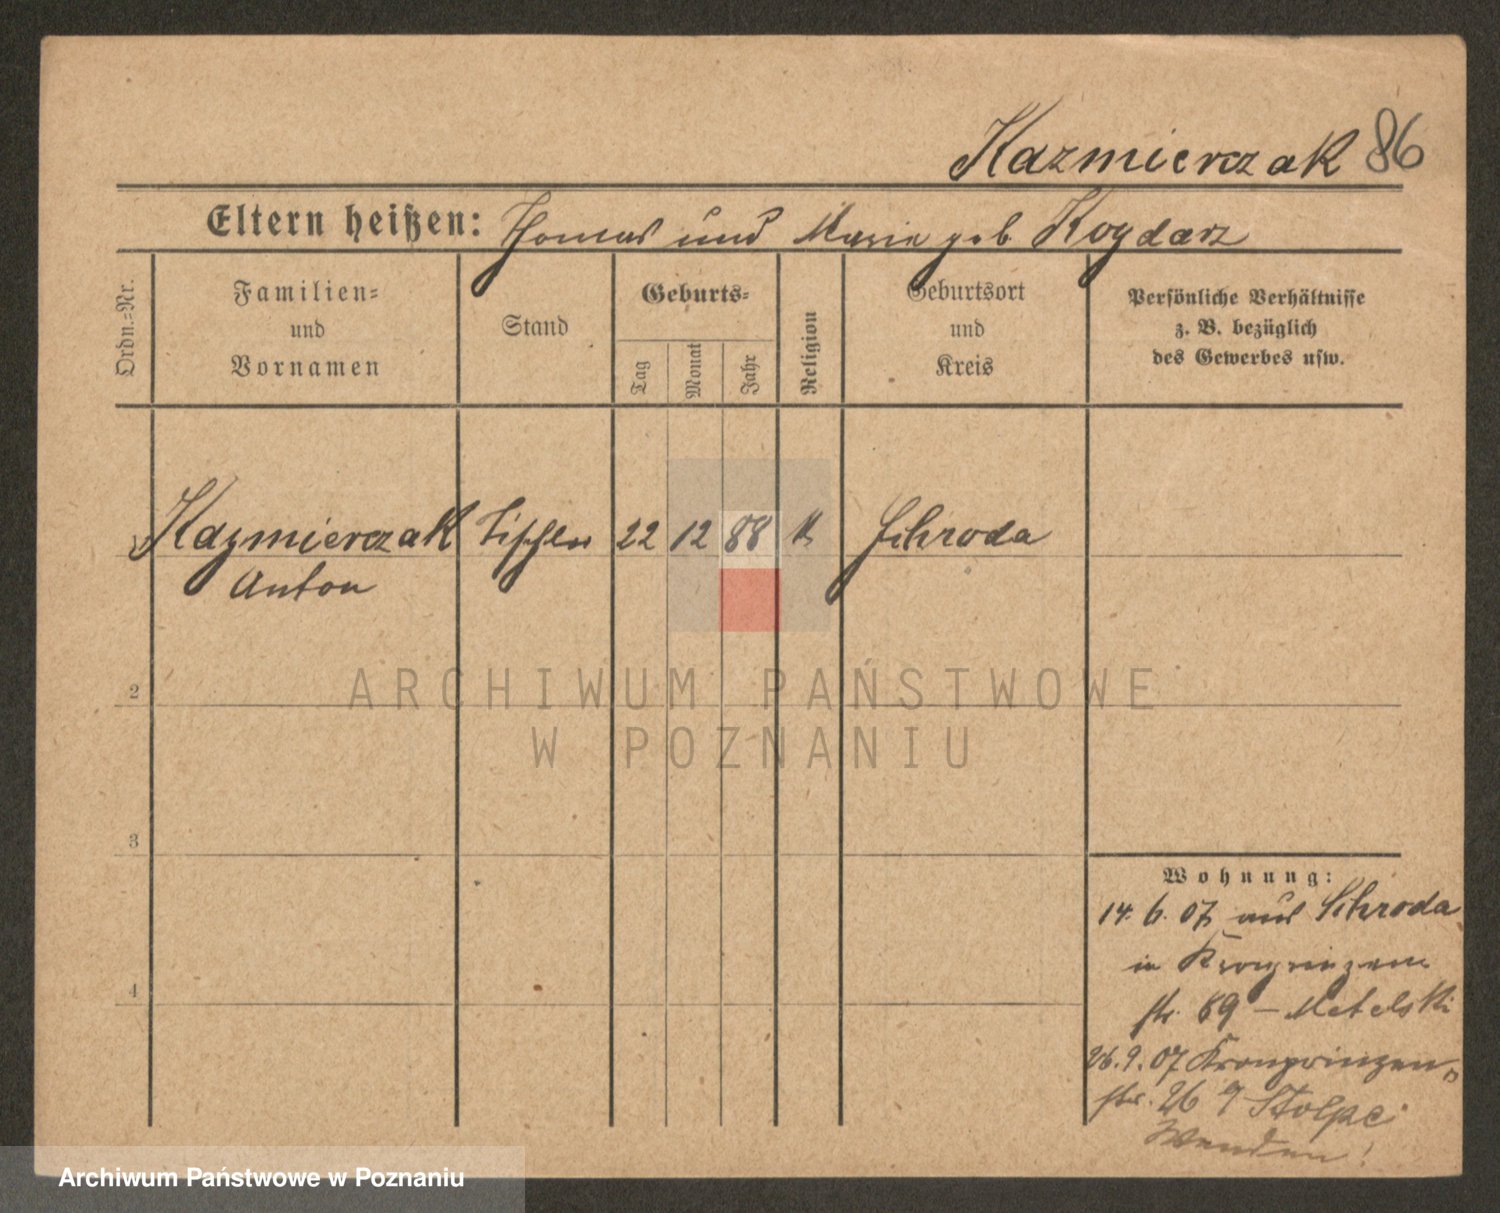 Kazmierczak 86
Eltern heißen: Thomas und Marie geb. Kogdarz
Ordn.-Nr.
Familien-
und
Vornamen
Stand
Geburts-
Tag
Monat
Jahr
Religion
Geburtsort
und
Kreis
Persönliche Verhältnisse
z. B. bezüglich
des Gewerbes usw.
Kazmierczak Tischler 22 12 88 K Schroda
Anton
ARCHIWUM PAŃSTWOWE
W POZNANIU
2
3
4
Wohnung:
14. 6. 07 aus Schroda
in Kronprinzen
str. 89 – Metelski
26. 9. 07 Kronprinzen
str. 26 Stolpe
Wenden!
Archiwum Państwowe w Poznaniu